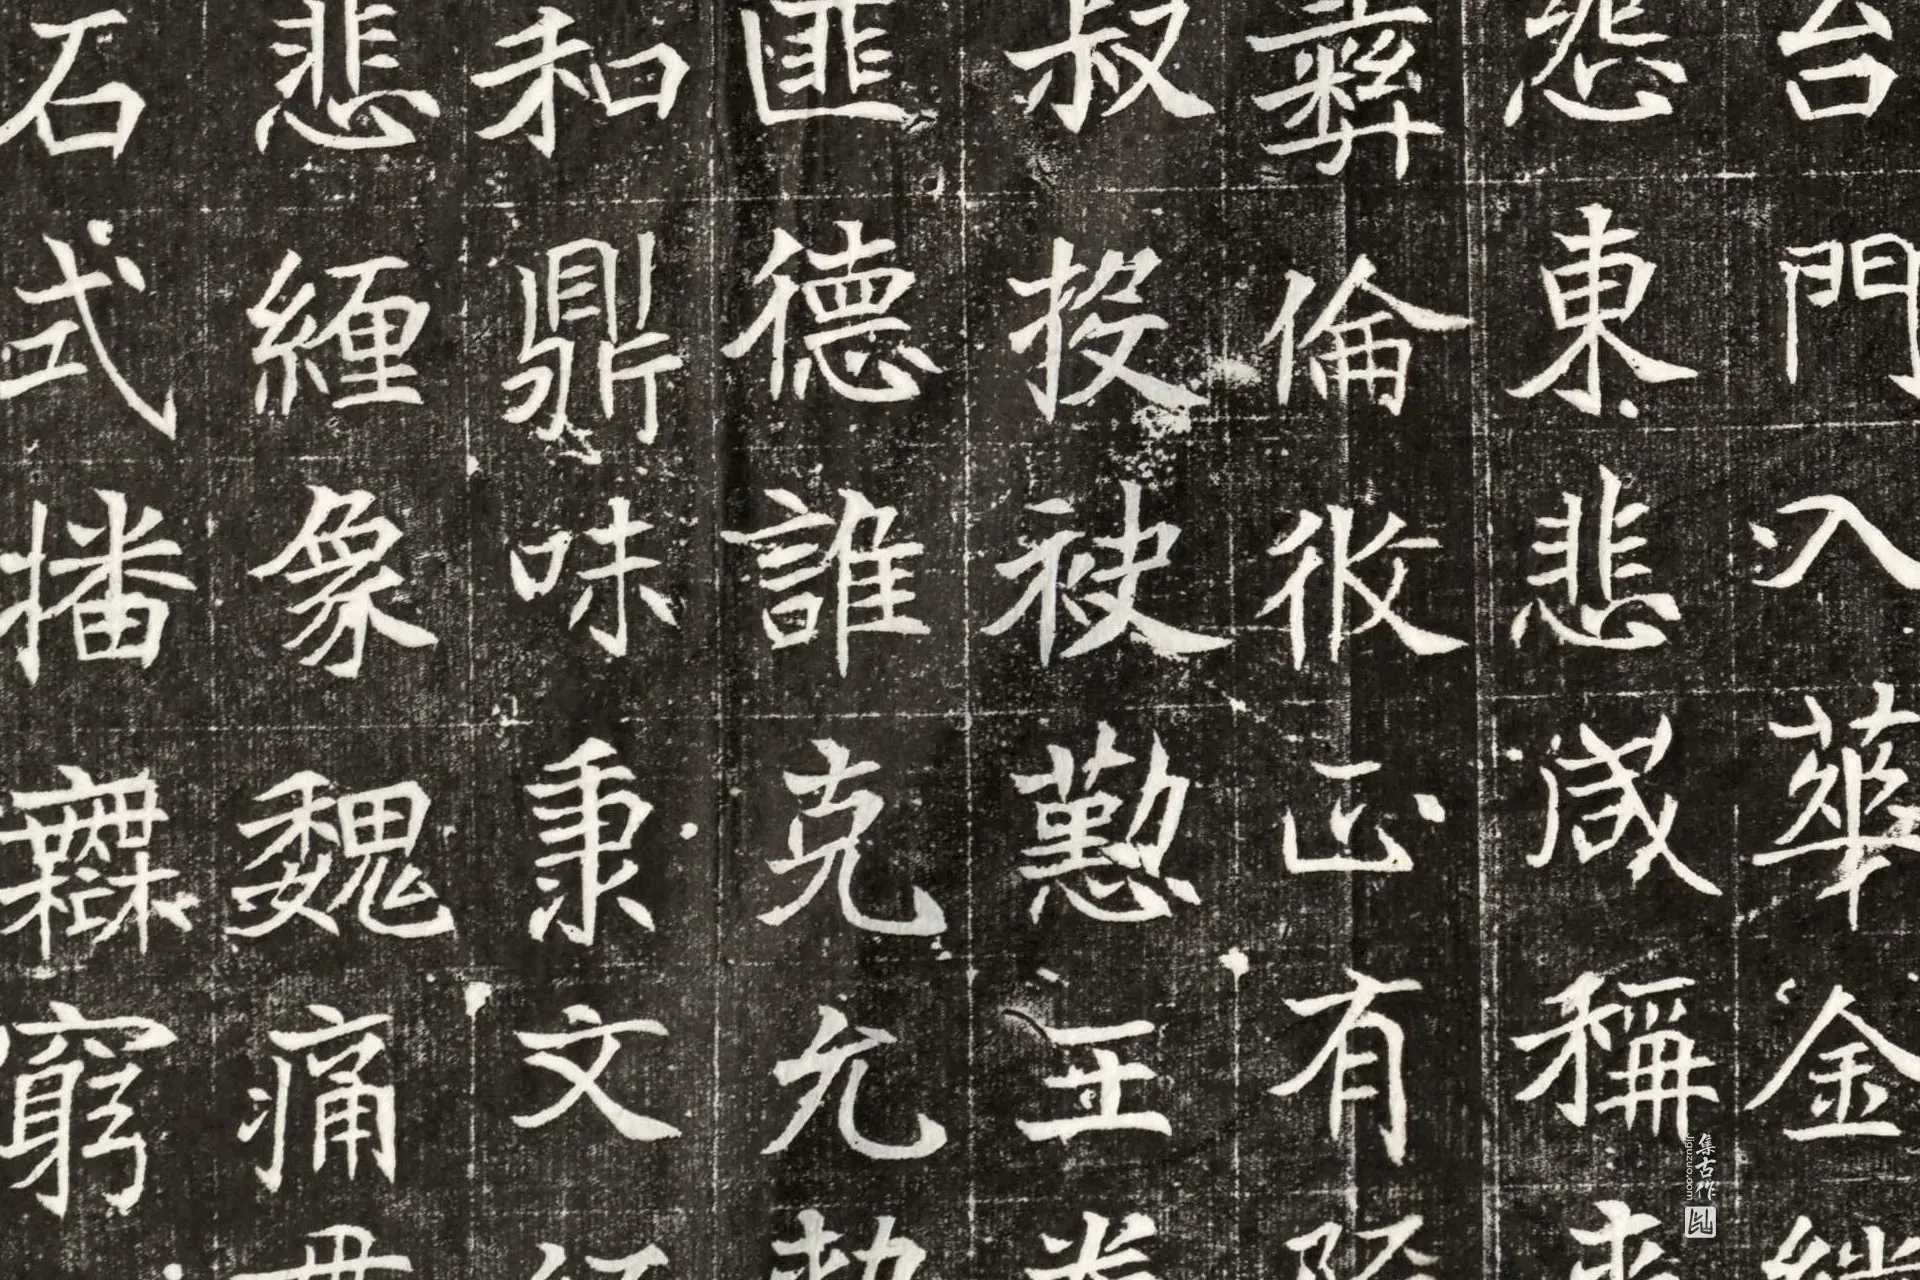 台門入華金
怨東悲咸稱來
彝倫攸正有
叔投袂勤王
匪德誰克允執
和鼎味秉文
悲纏象魏痛
石式播舞窮
集古作
jiguzuo.com